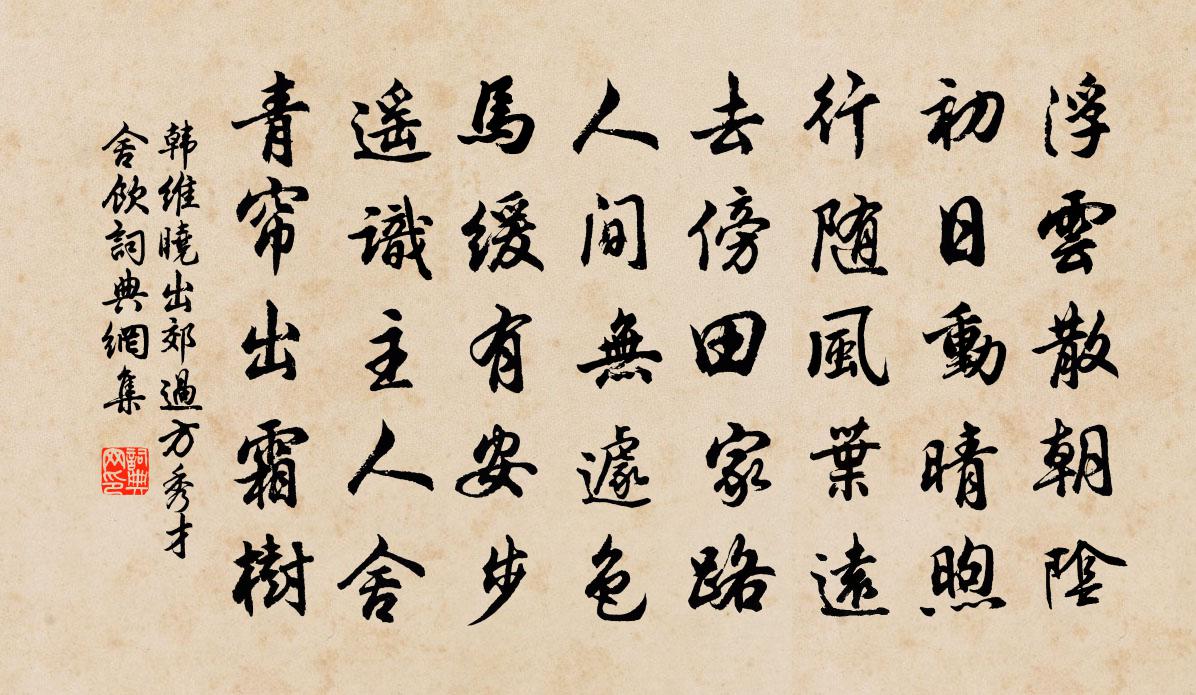 浮雲散朝陰
初日動晴煦
行随風葉遠
去傍田家路
人間無遽色
馬緩有安步
遥識主人舍
青帘出霜樹
韩維曉出郊過方秀才
舍飲詞典網集
詞典
网印